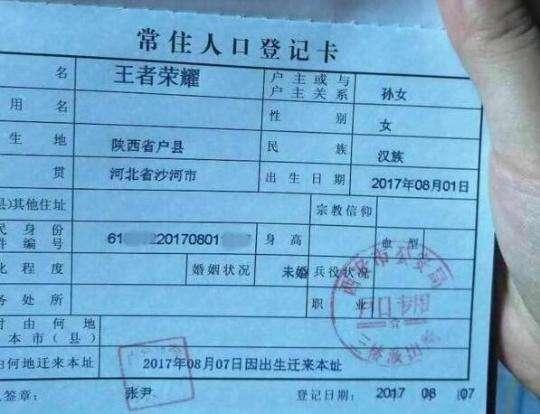 常住人口登记卡
名 王者荣耀 户主或与户主关系 孙女
用名 性别 女
生地 陕西省户县 民族 汉族
贯 河北省沙河市 出生日期 2017年08月01日
县)其他住址 宗教信仰
民身份件编号 61 220170801 身高 血型
化程度 婚姻状况 未婚 兵役状况
务处所 职业
时由何地本市(县)
何地迁来本址 2017年08月07日因出生迁来本址
签章: 张尹 登记日期: 2017 08 07
西安市公安局
户口专用